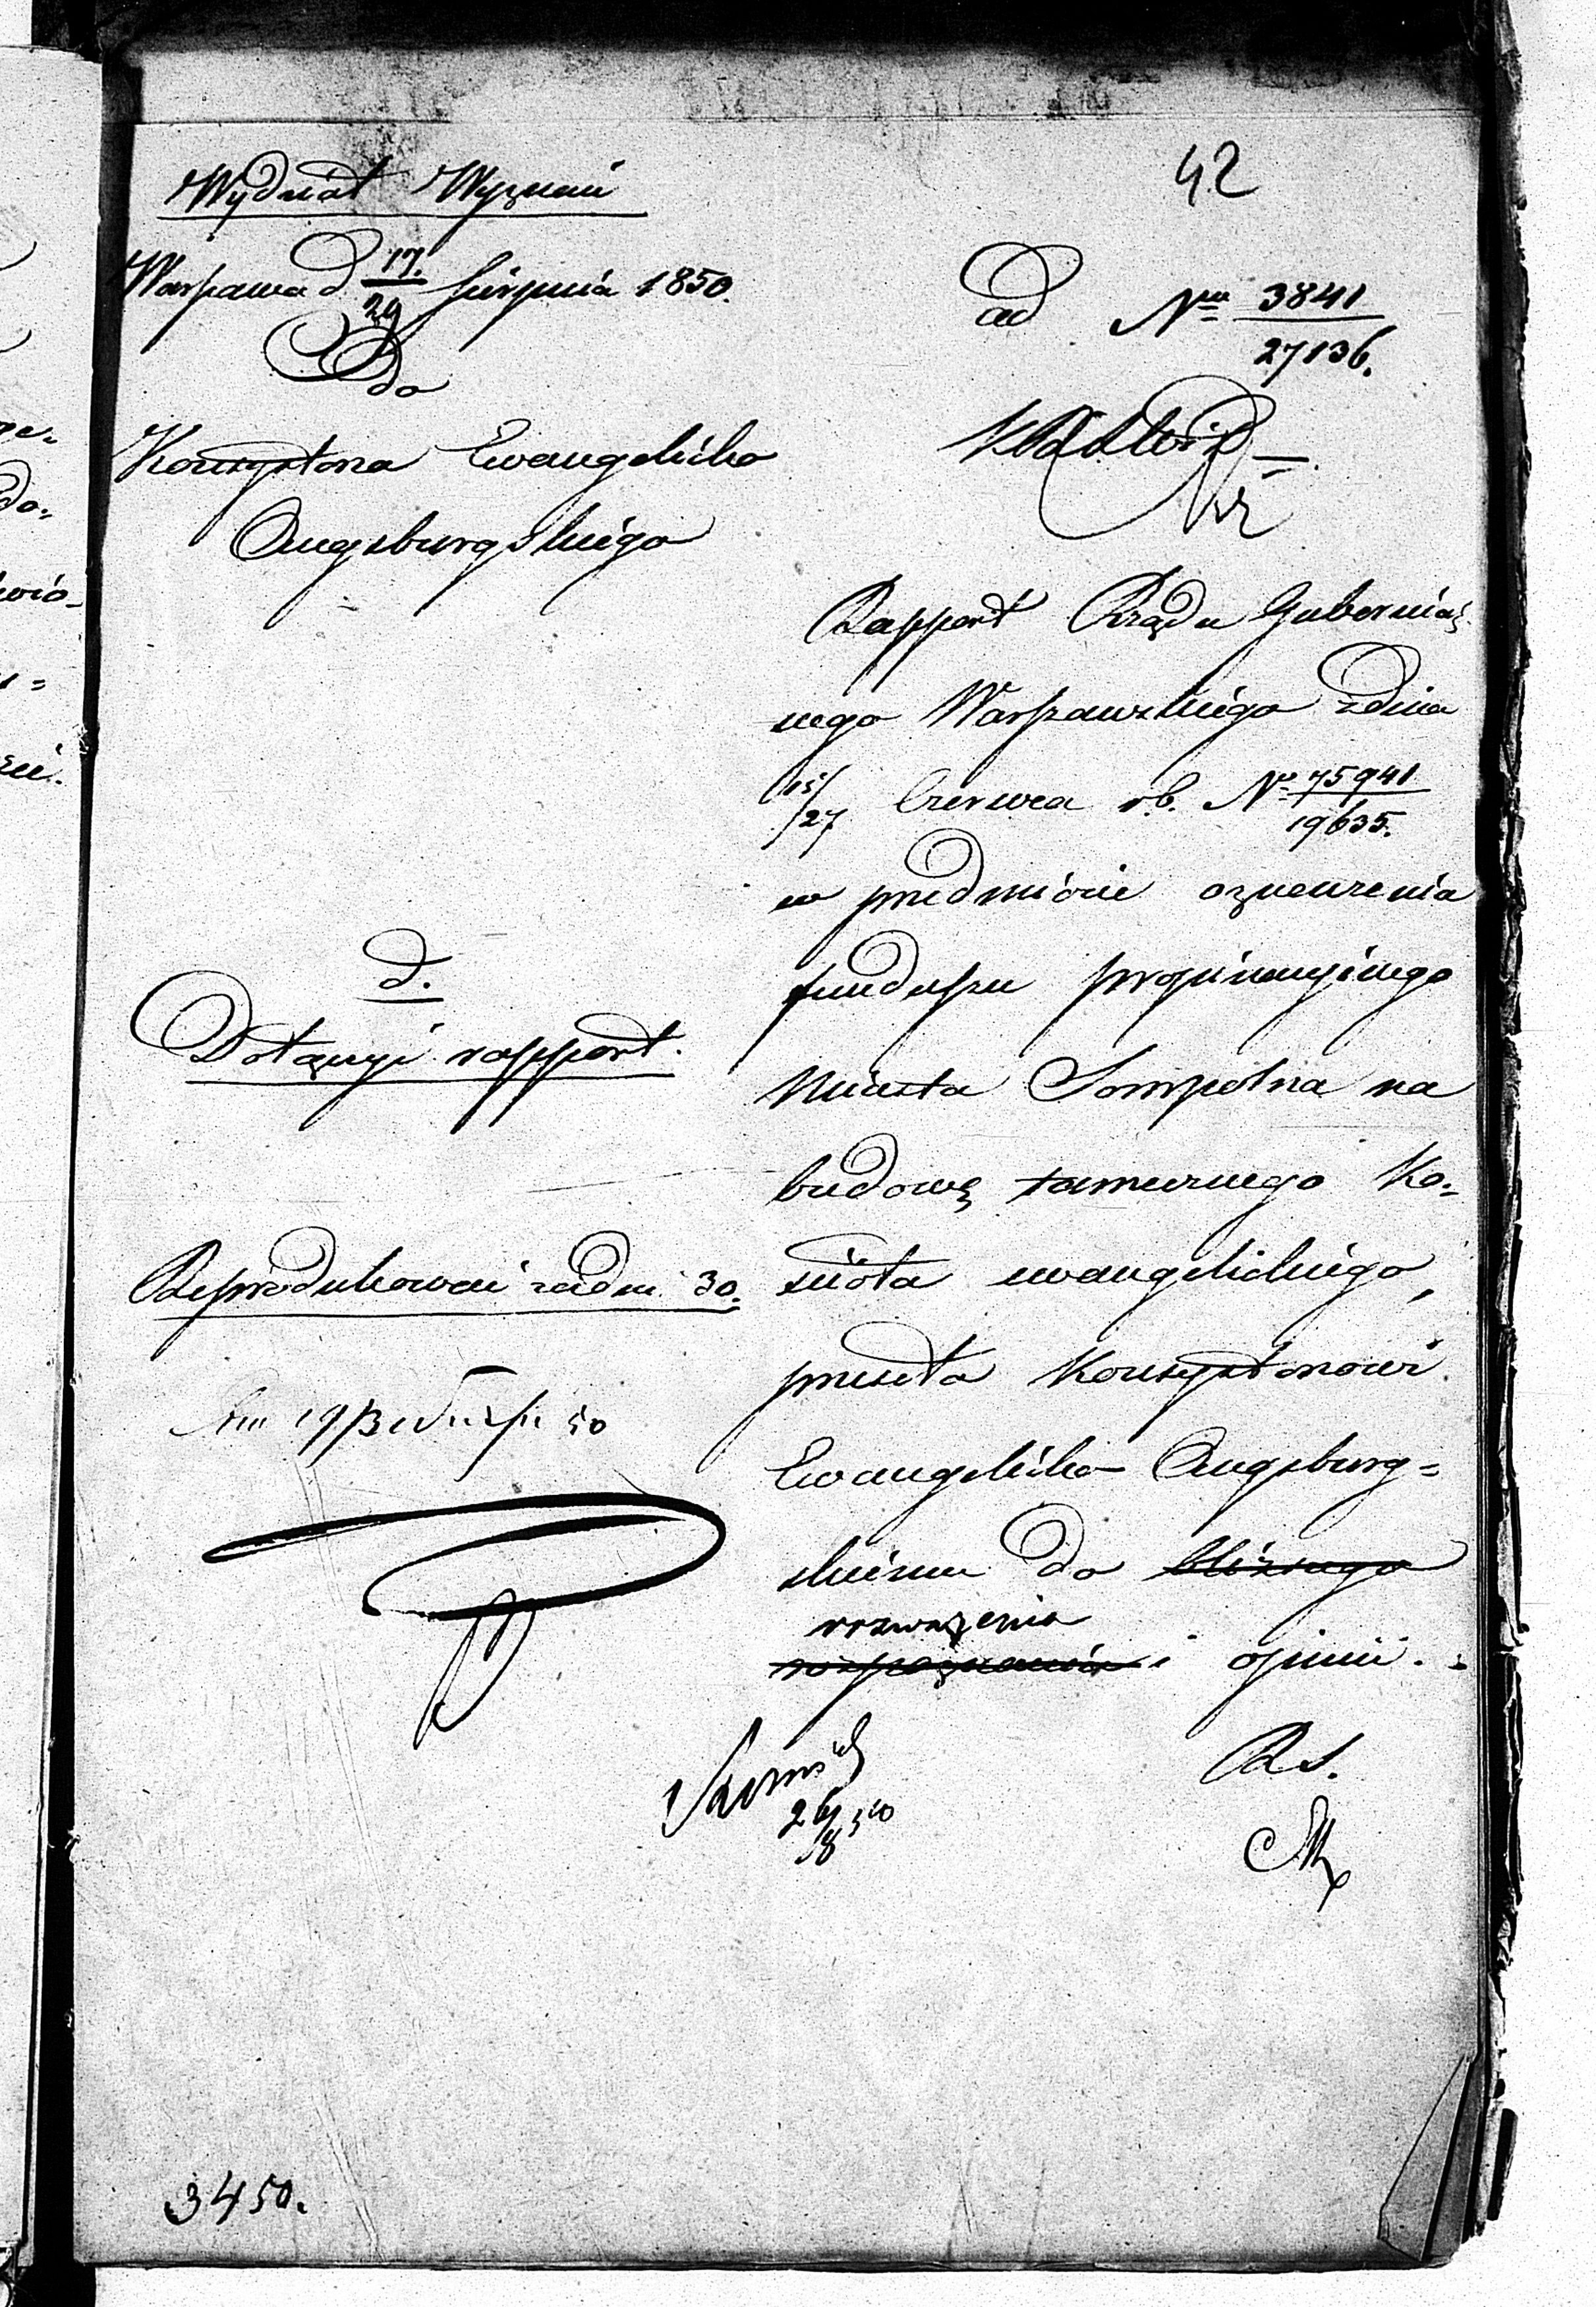 42
Wydział Wyznań
Warszawa d 17/29 Sierpnia 1850.
Do
Konsystorza Ewangelicko
Augsburgskiego
ad Nru 3841/27136.
Rapport Rządu Gubernial
nego Warszawskiego z dnia
15/27 Czerwca r.b. No 75941/19635.
w przedmiocie oznaczenia
funduszu propinacyjnego
Miasta Sompolna na
budowę tamecznego Ko-
ścioła ewangelickiego,
przesyła Konsystorzowi
Ewangelicko Augsburg=
skiemu do bliższego
rozważenia
rozpoznania i opinii.
d.
Dołączyć rapport.
Reprodukować za dni 30.
R S.
26/8 50
3450.